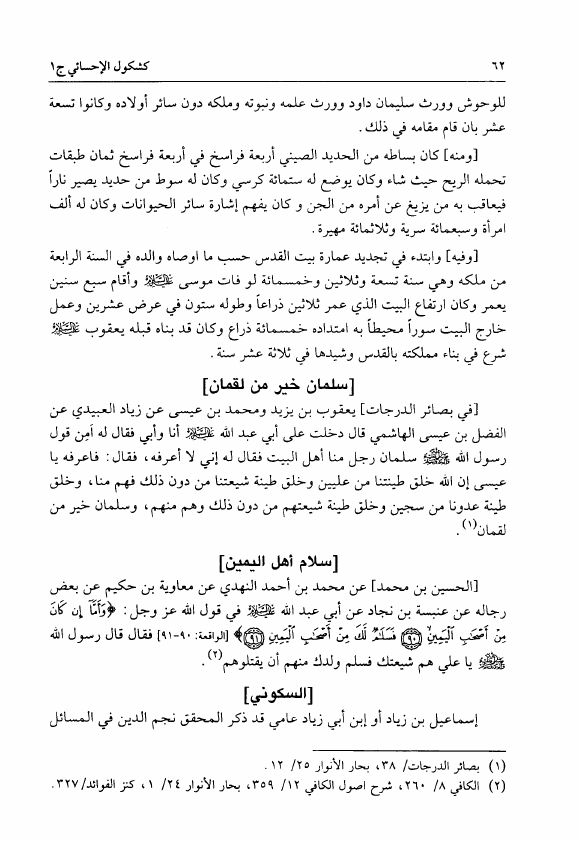 ٦٢ كشكول الإحسائي ج١
للوحوش وورث سليمان داود وورث علمه ونبوته وملكه دون سائر أولاده وكانوا تسعة
عشر بان قام مقامه في ذلك.
[ومنه] كان بساطه من الحديد الصيني أربعة فراسخ في أربعة فراسخ ثمان طبقات
تحمله الريح حيث شاء وكان يوضع له ستمائة كرسي وكان له سوط من حديد يصير ناراً
فيعاقب به من يزيغ عن أمره من الجن و كان يفهم إشارة سائر الحيوانات وكان له ألف
امرأة وسبعمائة سرية وثلاثمائة مهيرة.
[وفيه] وابتدء في تجديد عمارة بيت القدس حسب ما اوصاه والده في السنة الرابعة
من ملكه وهي سنة تسعة وثلاثين وخمسمائة لو فات موسى عليه السلام وأقام سبع سنين
يعمر وكان ارتفاع البيت الذي عمر ثلاثين ذراعاً وطوله ستون في عرض عشرين وعمل
خارج البيت سوراً محيطاً به امتداده خمسمائة ذراع وكان قد بناه قبله يعقوب عليه السلام
شرع في بناء مملكته بالقدس وشيدها في ثلاثة عشر سنة.
[سلمان خير من لقمان]
[في بصائر الدرجات] يعقوب بن يزيد ومحمد بن عيسى عن زياد العبيدي عن
الفضل بن عيسى الهاشمي قال دخلت على أبي عبد الله عليه السلام أنا وأبي فقال له اَمِن قول
رسول الله ﷺ سلمان رجل منا أهل البيت فقال له إني لا أعرفه، فقال: فاعرفه يا
عيسى إن الله خلق طينتنا من عليين وخلق طينة شيعتنا من دون ذلك فهم منا، وخلق
طينة عدونا من سجين وخلق طينة شيعتهم من دون ذلك وهم منهم، وسلمان خير من
لقمان(١).
[سلام أهل اليمين]
[الحسين بن محمد] عن محمد بن أحمد النهدي عن معاوية بن حكيم عن بعض
رجاله عن عنبسة بن نجاد عن أبي عبد الله عليه السلام في قول الله عز وجل: ﴿وَأَمَّآ إِن كَانَ
مِنْ أَصْحَٰبِ ٱلْيَمِينِ ۝٩٠ فَسَلَٰمٌ لَّكَ مِنْ أَصْحَٰبِ ٱلْيَمِينِ ۝٩١﴾ [الواقعة: ٩٠-٩١] فقال قال رسول الله
ﷺ يا علي هم شيعتك فسلم ولدك منهم أن يقتلوهم(٢).
[السكوني]
إسماعيل بن زياد أو إبن أبي زياد عامي قد ذكر المحقق نجم الدين في المسائل
(١) بصائر الدرجات/ ٣٨، بحار الأنوار ٢٥/ ١٢.
(٢) الكافي ٨/ ٢٦٠، شرح اصول الكافي ١٢/ ٣٥٩، بحار الأنوار ٢٤/ ١، كنز الفوائد/٣٢٧.